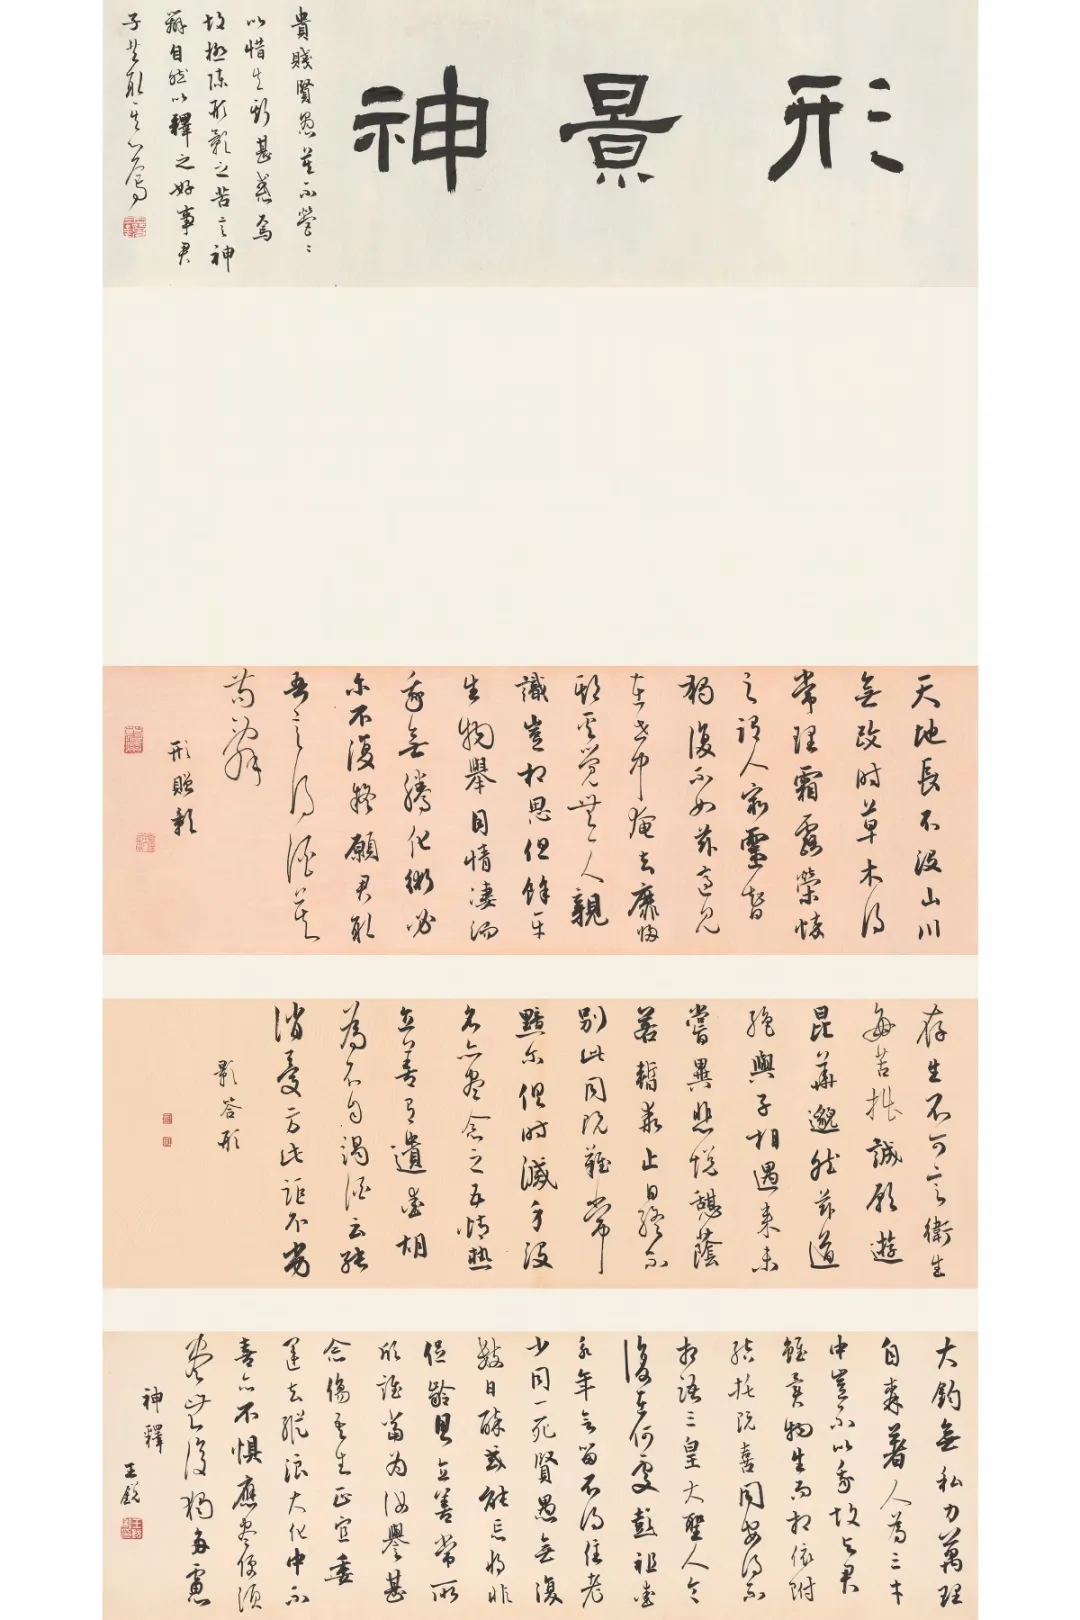 形景神
貴賤賢愚莫不營〻
以惜生斯甚惑焉
故極陳形影之苦言神
辨自然以釋之好事君
子共取其心焉
天地長不沒山川
無改時草木得
常理霜露榮悴
之謂人最靈智
獨復不如茲適見
在世中奄去靡歸
期奚覺無一人親
識豈相思但餘平
生物舉目情悽洏
我無騰化術必
爾不復疑願君取
吾言得酒莫
苟辭
形贈影
存生不可言衛生
每苦拙誠願遊
昆華邈然茲道
絕與子相遇來未
嘗異悲悅憩蔭
若暫乖止日終不
別此同既難常
黯爾俱時滅身沒
名亦盡念之五情熱
立善有遺愛胡
為不自竭酒云能
消憂方此詎不劣
影答形
大鈞無私力萬理
自森著人為三才
中豈不以我故與君
雖異物生而相依附
結托既喜同安得不
相語三皇大聖人今
復在何處彭祖愛
永年欲留不得住老
少同一死賢愚無復
數日醉或能忘將非
促齡具立善常所
欣誰當為汝譽甚
念傷吾生正宜委
運去縱浪大化中不
喜亦不懼應盡便須
盡無復獨多慮
神釋
王銳